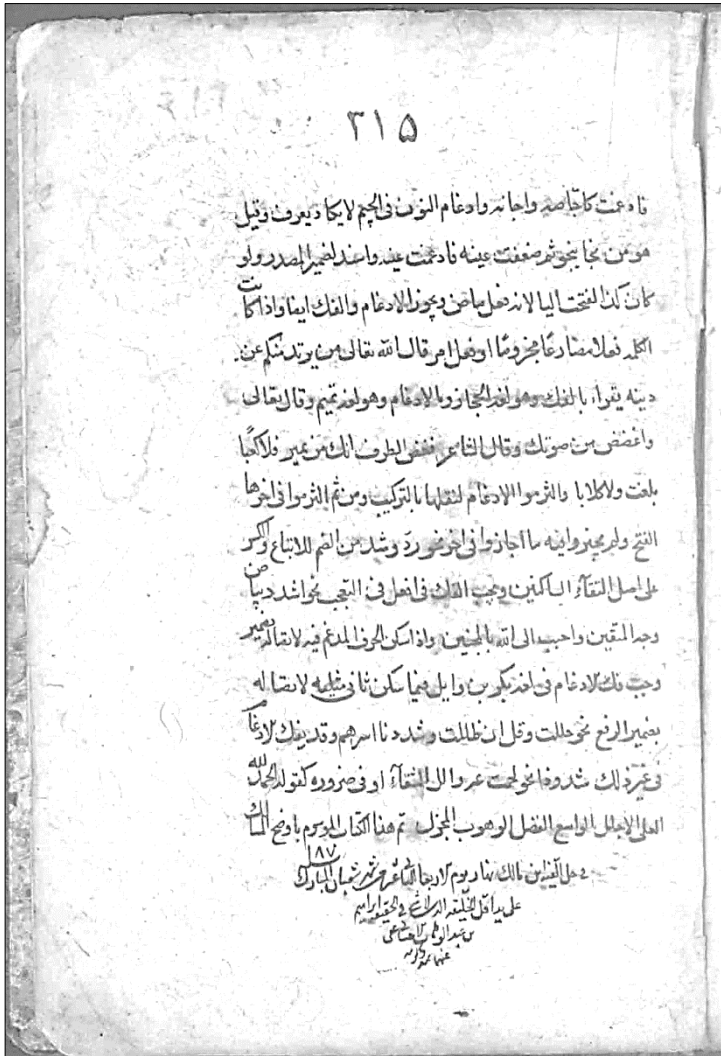 ٣١٥
فادغمت كاجاصه واجانه وادغام النون فى الجيم لا يكاد يعرف وقيل
هو من نجا ينجو ثم ضعفت عينه فادغمت عينه واسند لضمير المصدر ولو
كان كذا لفتحت اليا لانه فعل ماض ويجوز الادغام والفك ايضا واذا كانت
الكلمه فعلا مضارعا مجزوما او فعل امر قال الله تعالى من يرتد منكم عن
دينه يقراء بالفك وهو لغه الحجاز وبالادغام وهو لغه تميم وقال تعالى
واغضض من صوتك وقال الشاعر فغض الطرف انك من نمير فلا كعبا
بلغت ولا كلابا والتزموا الادغام لنقلها بالتركيب ومن ثم التزموا فى اخرها
الفتح ولم يجيزوا فيه ما اجازوا فى اخر نحو رد وشد من الضم للاتباع والكسر
على اصل التقآء الساكنين ويجب الفك فى افعل فى التعجب نحو اشدد ببياض
وجه المتقين واحبب الى الله بالمحسنين واذا سكن الحرف المدغم فيه لاتصاله بضمير
وجب فك الادغام فى لغه بكر بن وايل فيما سكن ثانى مثليه لاتصاله
بضمير الرفع نحو حللت وقل ان ظللت وشددنا اسرهم وقد يفك الادغام
فى غير ذلك شذوذا نحو لححت عينه والل السقآء او فى ضروره كقوله الحمد لله
العلى الاجلل الواسع الفضل الوهوب المجزل تم هذا الكتاب الموسوم باوضح المسالك
فى حل الفيه ابن مالك نهار يوم الاربعا شهر شعبان المبارك ٨٧
على يد اقل الخليقه ابراهيم
بن عبد الوهاب
عنهما